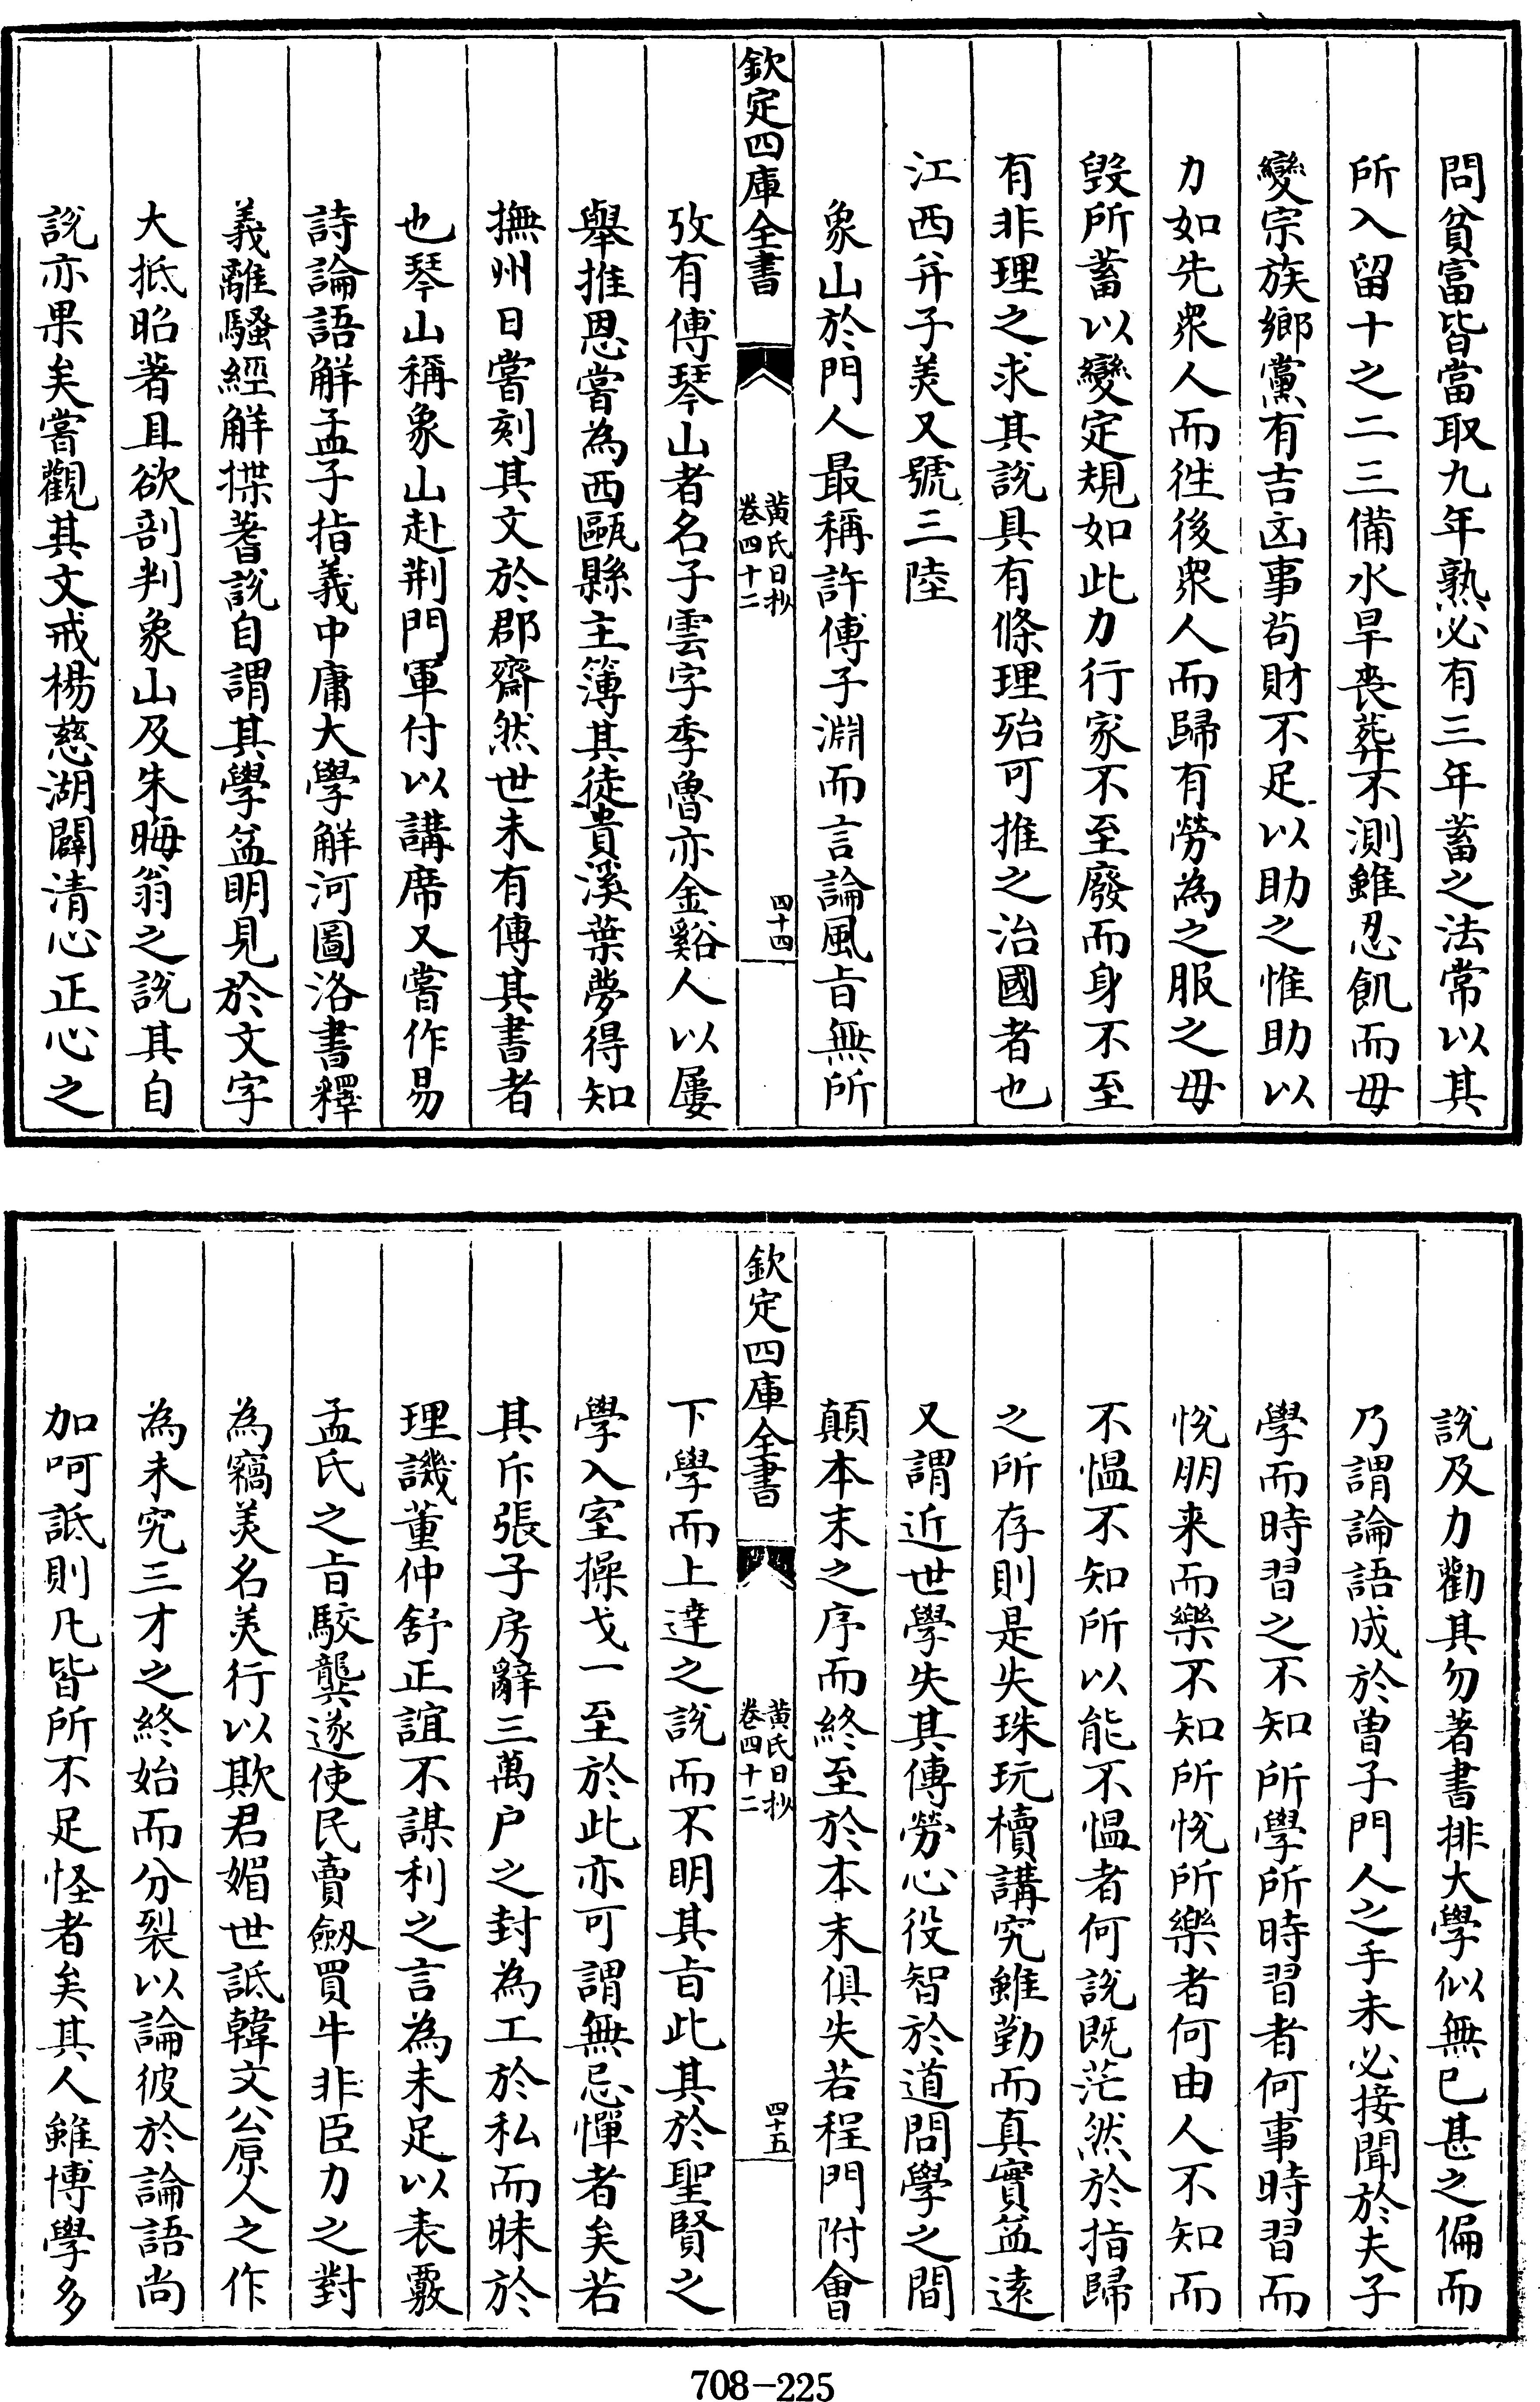 問貧富皆當取九年熟必有三年蓄之法常以其
所入留十之二三備水旱喪葬不測雖忍飢而毋
變宗族鄉黨有吉凶事茍財不足以助之惟助以
力如先衆人而徃後衆人而歸有勞為之服之毋
毁所蓄以變定規如此力行家不至廢而身不至
有非理之求其說具有條理殆可推之治國者也
江西并子美又號三陸
象山於門人最稱許傅子淵而言論風㫖無所
欽定四庫全書
黄氏日抄
卷四十二
四十四
攷有傅琴山者名子雲字季魯亦金谿人以屢
舉推恩嘗為西甌縣主簿其徒貴溪葉夢得知
撫州日嘗刻其文於郡齋然世未有傳其書者
也琴山稱象山赴荆門軍付以講席又嘗作易
詩論語解孟子指義中庸大學解河圖洛書釋
義離騷經解揲蓍説自謂其學益明見於文字
大抵昭著且欲剖判象山及朱晦翁之説其自
説亦果矣嘗觀其文戒楊慈湖闢清心正心之
說及力勸其勿著書排大學似無已甚之偏而
乃謂論語成於曾子門人之手未必接聞於夫子
學而時習之不知所學所時習者何事時習而
悦朋来而樂不知所悦所樂者何由人不知而
不愠不知所以能不愠者何說既茫然於指歸
之所存則是失珠玩櫝講究雖勤而真實益逺
又謂近世學失其傳勞心役智於道問學之間
顛本末之序而終至於本末俱失若程門附會
欽定四庫全書
黄氏日抄
卷四十二
四十五
下學而上達之說而不明其㫖此其於聖賢之
學入室操戈一至於此亦可謂無忌憚者矣若
其斥張子房辭三萬户之封為工於私而昧於
理譏董仲舒正誼不謀利之言為未足以表覈
孟氏之㫖駮龔遂使民賣劔買牛非臣力之對
為竊美名美行以欺君媚世詆韓文公原人之作
為未究三才之終始而分裂以論彼於論語尚
加呵詆則凡皆所不足怪者矣其人雖博學多
708-225